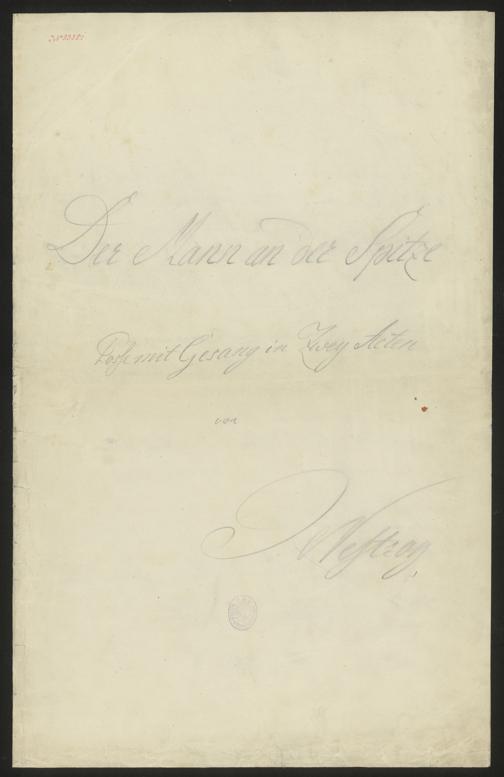 Der Mann an der Spitze
Posse mit Gesang in Zwey Acten
von
J Nestroy